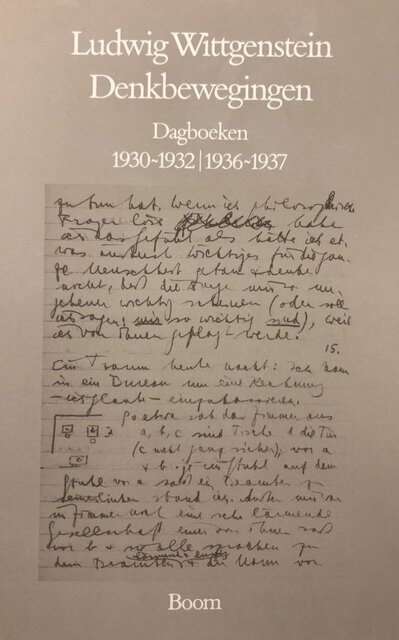 Ludwig Wittgenstein
Denkbewegingen
Dagboeken
1930~1932 | 1936~1937
zu tun hat. Wenn ich philosophische
Fragen löse habe
ich das Gefühl als hätte ich et-
was wichtiges für die gan-
ze Menschheit getan & denke
nicht, daß die Dinge mir so un-
geheuer wichtig scheinen (oder soll
ich sagen mir so wichtig sind), weil
ich von ihnen geplagt werde.
15.
Ein Traum heute nacht: Ich kam
in ein Bureau um eine Rechnung
– ich glaube – einzukassieren.
sah das Zimmer aus
a, b, c sind Tische d die Tür
(c nicht ganz sicher), vor a
& b je ein Stuhl auf dem
Stuhl vor a saß ein Beamter zu
stand ich. Außer mir war
im Zimmer noch eine sehr lärmende
Gesellschaft einer von ihnen saß
vor b & alle sprachen zu
dem Beamten & der Mann vor
Boom